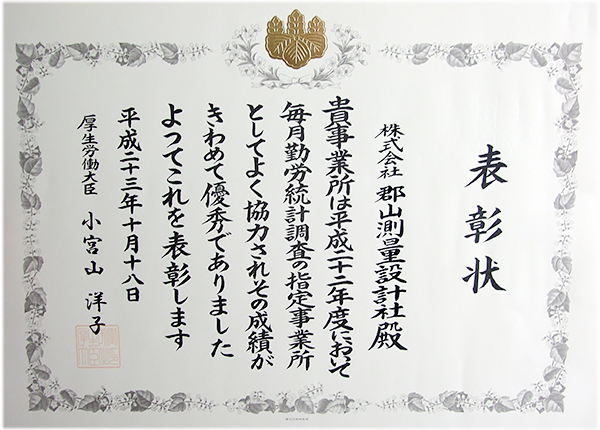 表彰状
株式会社 郡山測量設計社殿
貴事業所は平成二十二年度において
毎月勤労統計調査の指定事業所
としてよく協力されその成績が
きわめて優秀でありました
よってこれを表彰します
平成二十三年十月十八日
厚生労働大臣 小宮山 洋子